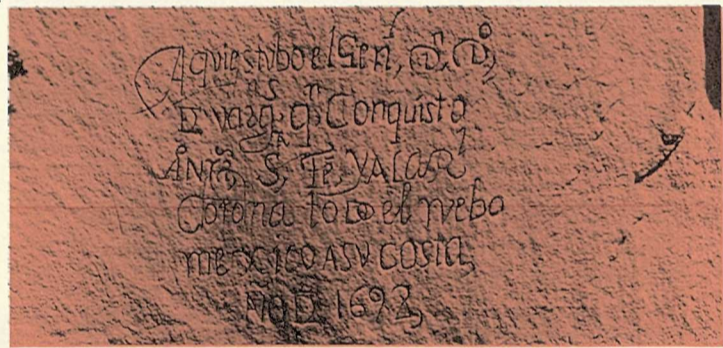 Aqui estubo el Gen, Dn. Do,
D vargas qn Conquisto
A Nra S, Fe, YALAR
Corona toDo el nuebo
mexico ASV COSTA,
Año D 1692,